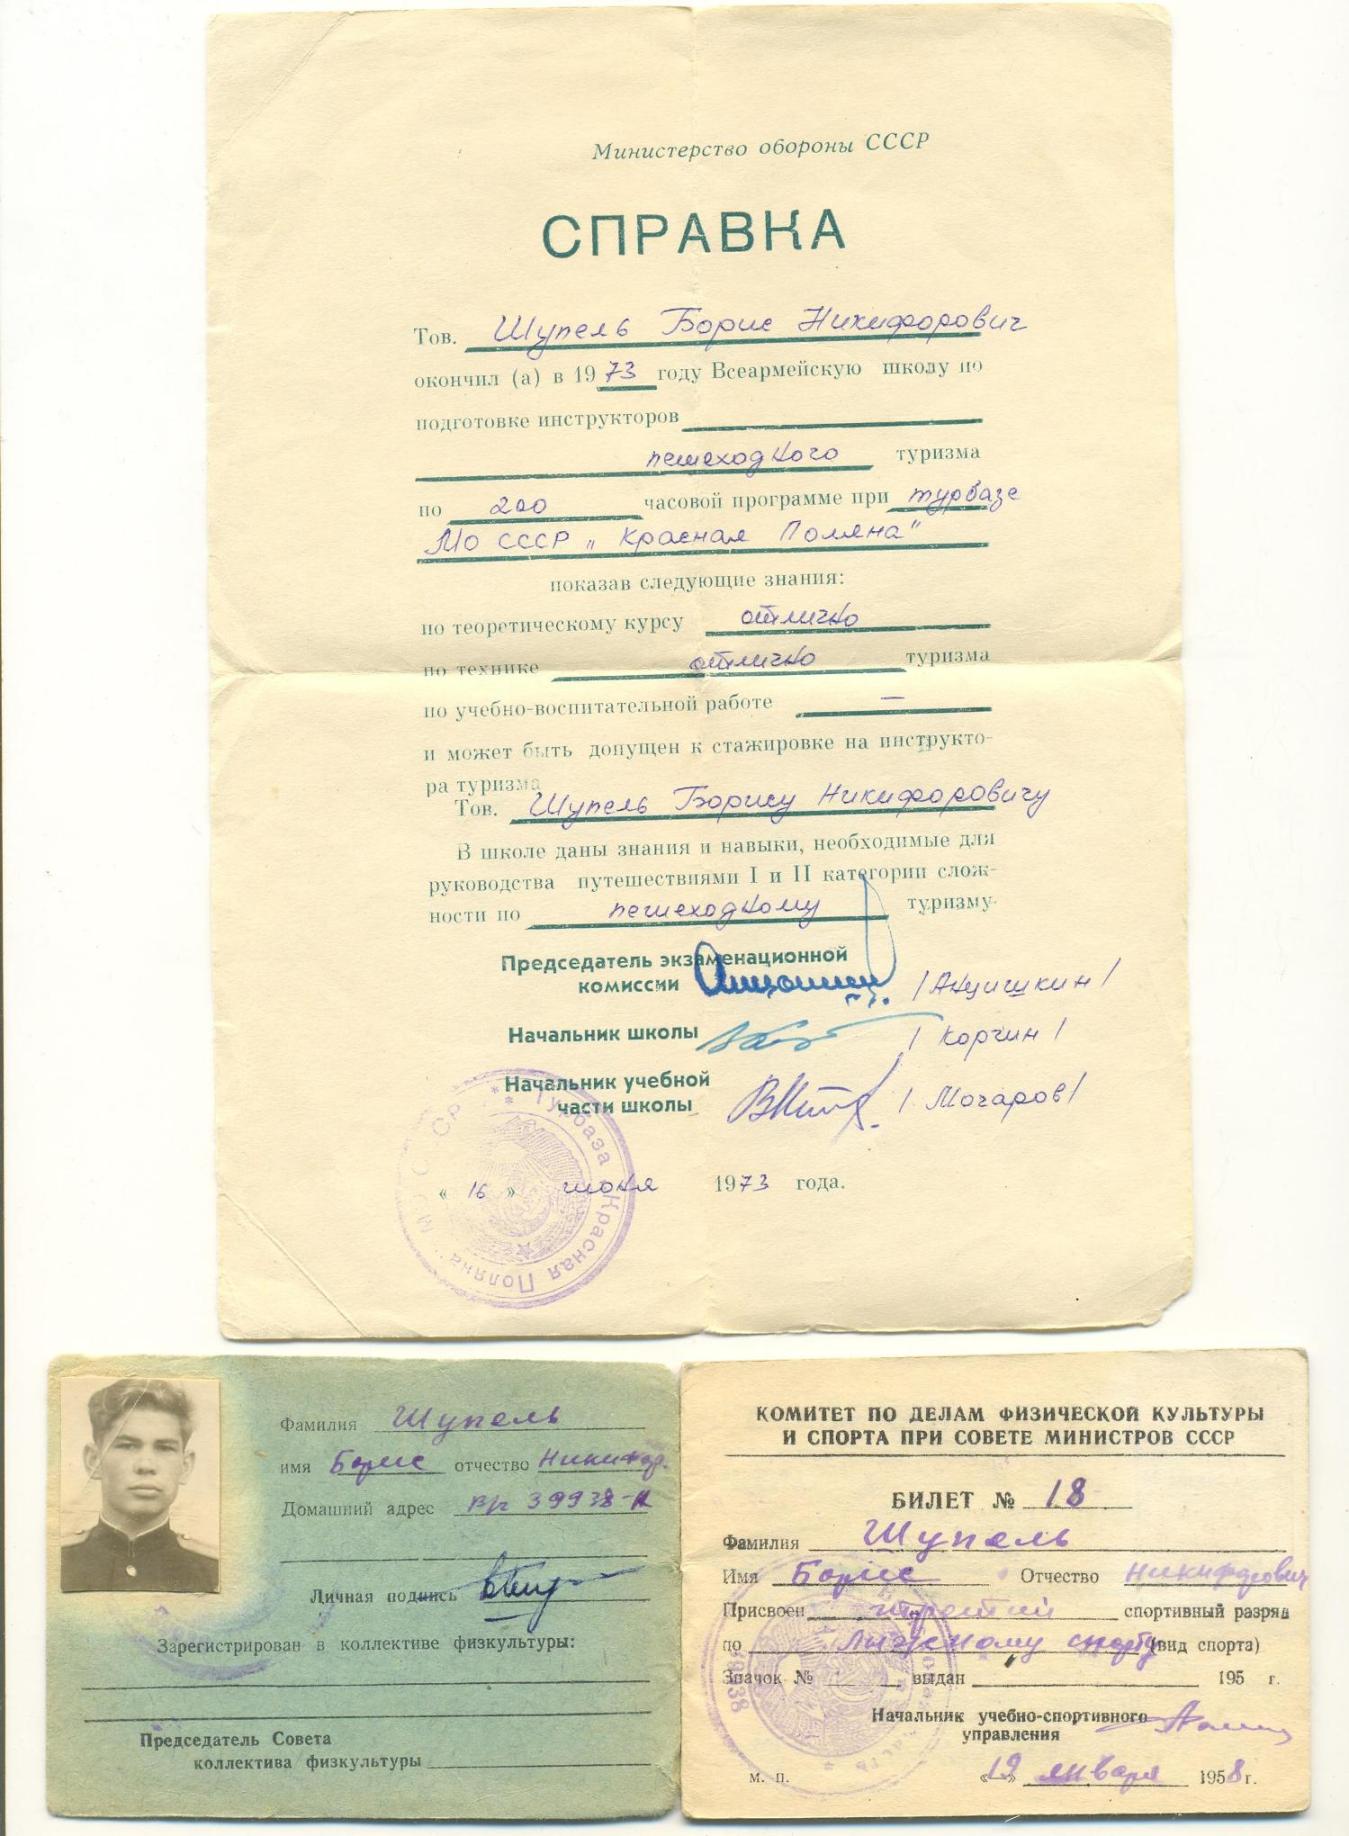 Министерство обороны СССР
СПРАВКА
Тов. Шупель Борис Никифорович
окончил (а) в 1973 году Всеармейскую школу по
подготовке инструкторов
пешеходного туризма
по 200 часовой программе при турбазе
МО СССР „Красная Поляна"
показав следующие знания:
по теоретическому курсу отлично
по технике отлично туризма
по учебно-воспитательной работе —
и может быть допущен к стажировке на инструкто-
ра туризма
Тов. Шупель Борису Никифоровичу
В школе даны знания и навыки, необходимые для
руководства путешествиями I и II категории слож-
ности по пешеходному туризму.
Председатель экзаменационной
комиссии /Анчишкин/
Начальник школы /Корчин/
Начальник учебной
части школы /Мочаров/
« 16 » июня 1973 года.
Турбаза "Красная Поляна" МО СССР
Фамилия Шупель
имя Борис отчество Никифор.
Домашний адрес в/ч 39938-к
Личная подпись
Зарегистрирован в коллективе физкультуры:
Председатель Совета
коллектива физкультуры
КОМИТЕТ ПО ДЕЛАМ ФИЗИЧЕСКОЙ КУЛЬТУРЫ
И СПОРТА ПРИ СОВЕТЕ МИНИСТРОВ СССР
БИЛЕТ № 18
Фамилия Шупель
Имя Борис Отчество Никифорович
Присвоен третий спортивный разряд
по лыжному спорту (вид спорта)
Значок № выдан 195 г.
Начальник учебно-спортивного
управления
м. п. «19» января 1958 г.
39938